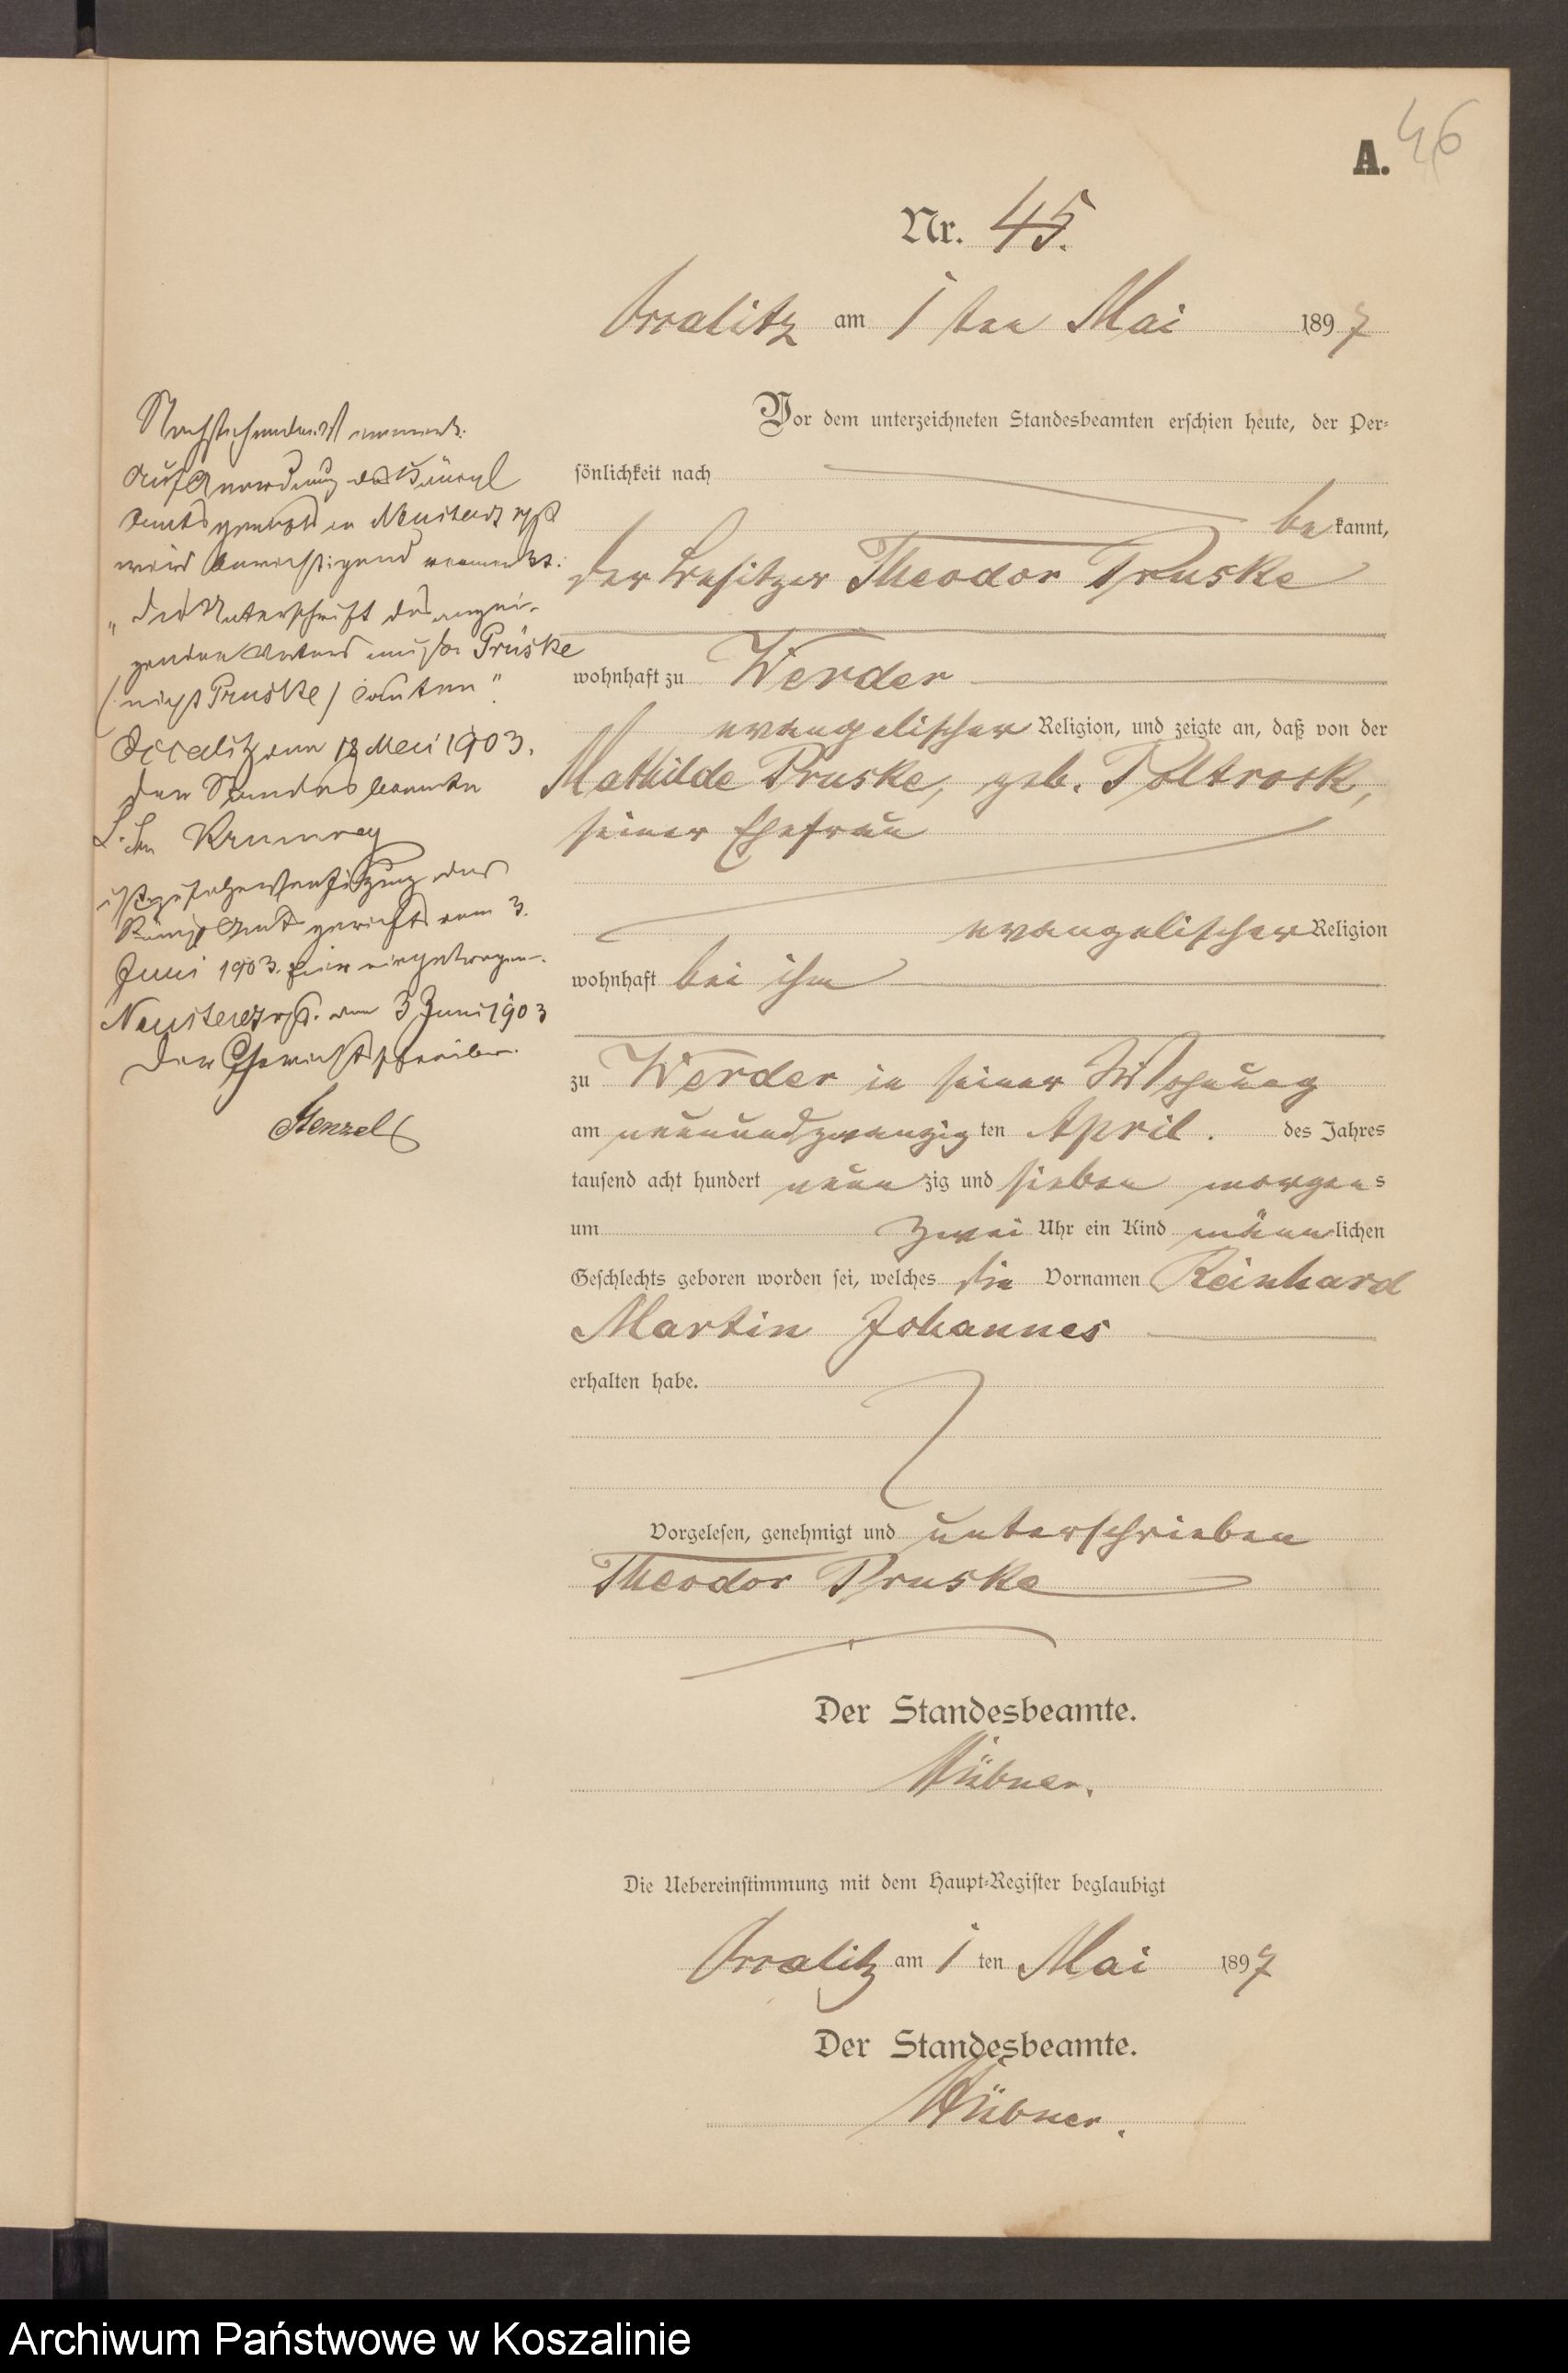 46
A.
Nr. 45.
Occalitz am 1 ten Mai 1897
Vor dem unterzeichneten Standesbeamten erschien heute, der Per-
sönlichkeit nach
be kannt,
der Besitzer Theodor Pruske
wohnhaft zu Werder
evangelischer Religion, und zeigte an, daß von der
Mathilde Pruske, geb. Poltrock,
seiner Ehefrau
evangelischer Religion
wohnhaft bei ihm
zu Werder in seiner Wohnung
am neunundzwanzig ten April. des Jahres
tausend acht hundert neun zig und sieben morgens
um zwei Uhr ein Kind männlichen
Geschlechts geboren worden sei, welches die Vornamen Reinhard
Martin Johannes
erhalten habe.
Vorgelesen, genehmigt und unterschrieben
Theodor Pruske
Der Standesbeamte.
Hübner.
Die Uebereinstimmung mit dem Haupt-Register beglaubigt
Occalitz am 1 ten Mai 1897
Der Standesbeamte.
Hübner.
Auf Anordnung des Königl
Amtsgerichts in Neustadt
wird berichtigend vermerkt:
"die Unterschrift des anzei-
genden Vaters müsse Prüske
(nicht Pruske) lauten".
Occalitz am 18 Mai 1903.
Der Standesbeamte
Krumrey
Verfügung des
Königl Amtsgerichts vom 3.
Juni 1903. hier eingetragen.
Neustadt am 3 Juni 1903
Der Gerichtsschreiber.
Stenzel
Archiwum Państwowe w Koszalinie